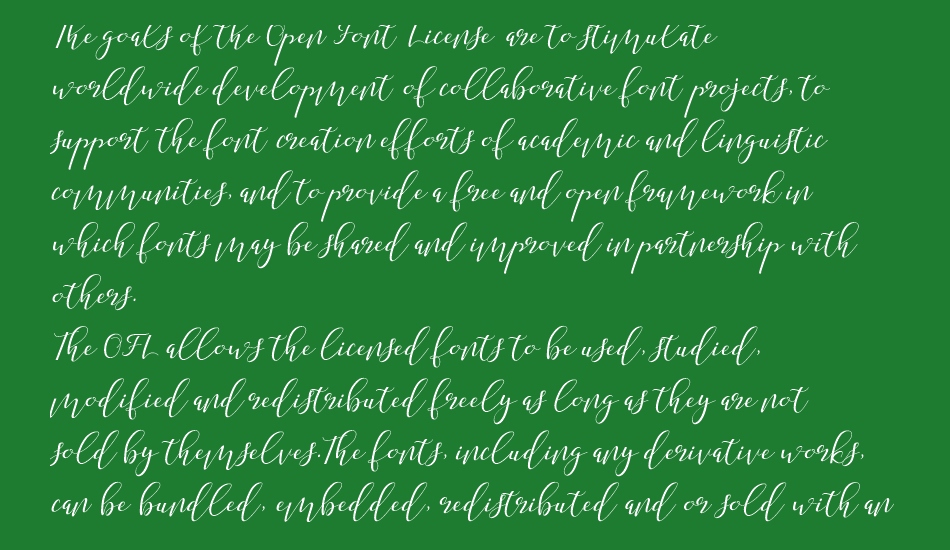 The goals of the Open Font License are to stimulate
worldwide development of collaborative font projects, to
support the font creation efforts of academic and linguistic
communities, and to provide a free and open framework in
which fonts may be shared and improved in partnership with
others.
The OFL allows the licensed fonts to be used, studied,
modified and redistributed freely as long as they are not
sold by themselves. The fonts, including any derivative works,
can be bundled, embedded, redistributed and or sold with an